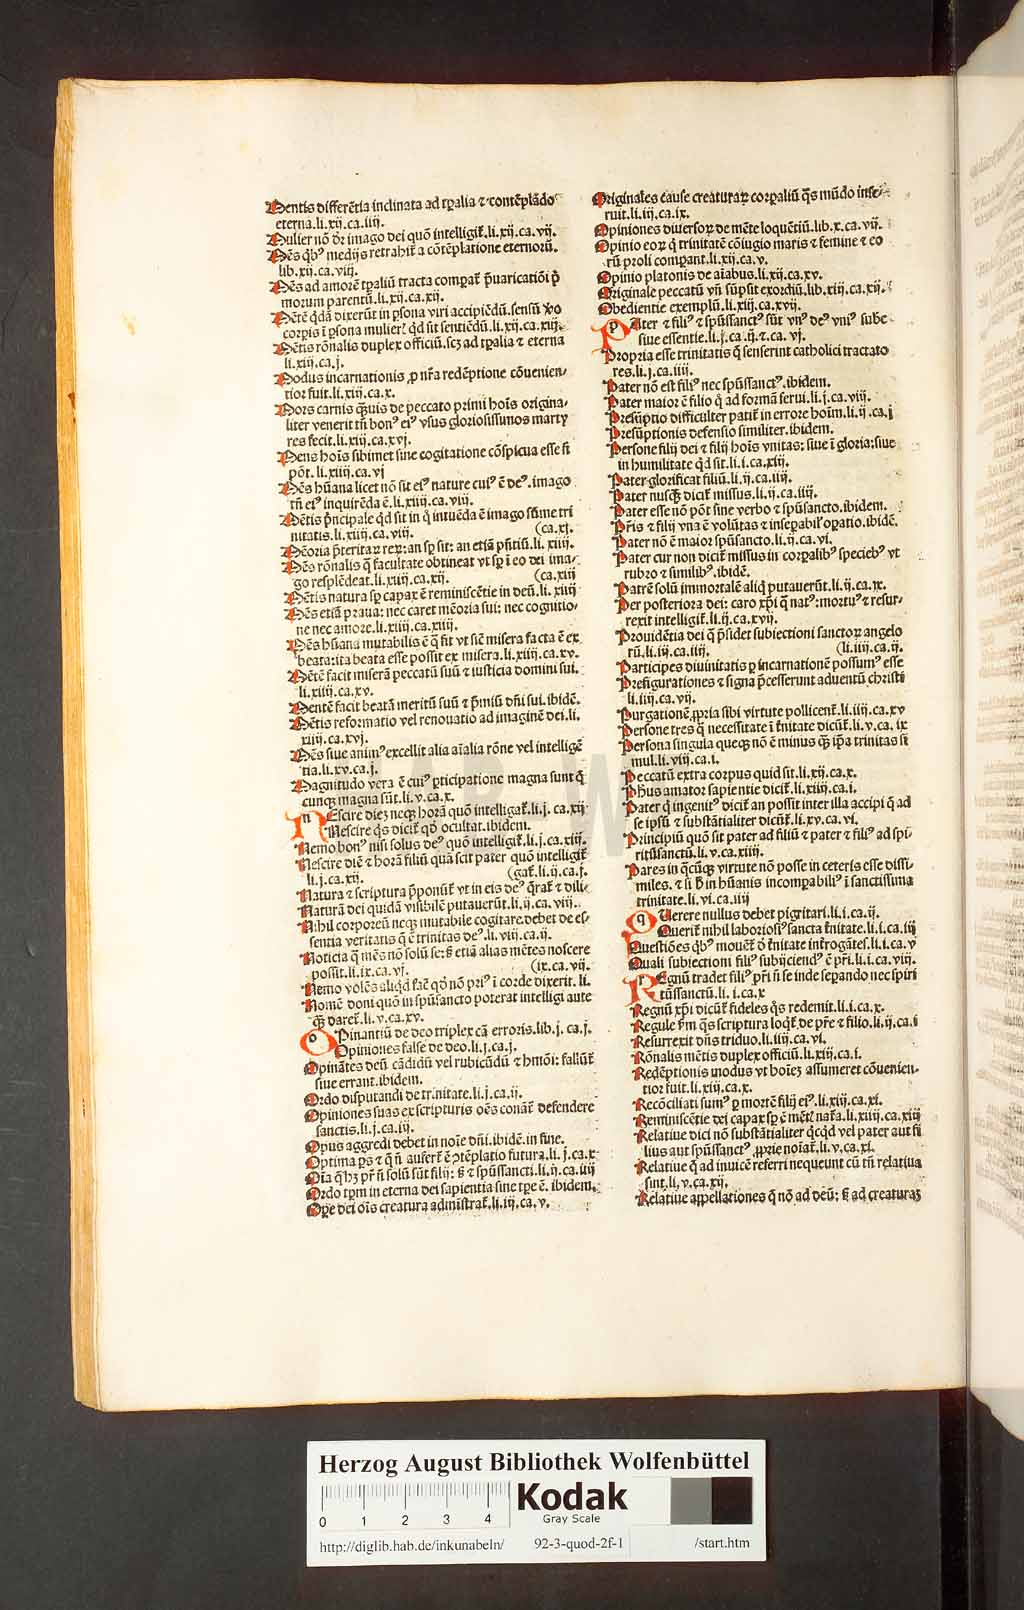 Mentis differẽtia inclinata ad tꝑalia ⁊ contẽplãdo
eterna.li.xij.ca.iiij.
Mulier nõ dr̃ imago dei quõ intelligit̃.li.xij.ca.vij.
Mẽs qḃꝰ medijs retrahit̃ a cõtẽplatione eternorũ.
lib.xij.ca.viij.
Mẽs ad amorẽ tꝑaliũ tracta compat̃ p̃uaricatiõi p̃
morum parentũ.li.xij.ca.xij.
Mẽtẽ q̃dã dixerũt in ꝑsona viri accipiẽdũ.sensũ ṽo
corpis ĩ ꝑsona mulierꝭ qd̃ sit sentiẽdũ.li.xij.ca.xiij.
Mẽtis rõnalis duplex officiũ.scꝫ ad tꝑalia ⁊ eterna
li.xiij.ca.j.
Modus incarnationis ꝓ nr̃a redẽptione cõuenien-
tior fuit.li.xiij.ca.x.
Mors carnis q̃uis de peccato primi hoĩs origina-
liter venerit tñ bonꝰ eiꝰ vsus gloriosissimos marty
res fecit.li.xiij.ca.xvj.
Mens hoĩs sibimet sine cogitatione cõspicua esse si
põt.li.xiiij.ca.vj
Mẽs hũana licet nõ sit eiꝰ nature cuiꝰ ẽ deꝰ.imago
tñ eiꝰ inquirẽda ẽ.li.xiiij.ca.viij.
Mẽtis p̃ncipale qd̃ sit in q̃ intuẽda ẽ imago sũme tri
nitatis.li.xiiij.ca.viij. (ca.xj.
Mẽoria p̃teritaꝝ reꝝ: an sꝑ sit: an etiã p̃ntiũ.li.xiiij.
Mẽs rõnalis q̃ facultate obtineat vt sꝑ ĩ eo dei ima-
go resplẽdeat.li.xiiij.ca.xij. (ca.xiij
Mẽtis natura sꝑ capax ẽ reminiscẽtie in deũ.li.xiiij
Mẽs etiã praua: nec caret mẽoria sui: nec cognitio-
ne nec amore.li.xiiij.ca.xiiij.
Mẽs hũana mutabilis ẽ q̃ sit vt siẽ misera facta ẽ ex
beata:ita beata esse possit ex misera.li.xiiij.ca.xv.
Mẽtẽ facit miserã peccatũ suũ ⁊ iusticia domini sui.
li.xiiij.ca.xv.
Mentẽ facit beatã meritũ suũ ⁊ p̃miũ dñi sui.ibidẽ.
Mẽtis reformatio vel renouatio ad imaginẽ dei.li.
xiiij.ca.xvj.
Mẽs siue animꝰ excellit alia aĩalia rõne vel intelligẽ
tia.li.xv.ca.j.
Magnitudo vera ẽ cuiꝰ ꝑticipatione magna sunt q̃
cunqꝫ magna sũt.li.v.ca.x.
NEscire diez necꝗ horã quõ intelligat̃.li.j.ca.xij
Nescire q̃s dicit̃ qð ocultat.ibidem.
Nemo bonꝰ nisi solus deꝰ quõ intelligit̃.li.j.ca.xiij.
Nescire diẽ ⁊ horã filiũ quã scit pater quõ intelligit̃
li.j.ca.xij. (gat̃.li.ij.ca.j.
Natura ⁊ scriptura p̃ponũt̃ vt in eis deꝰ q̃rat̃ ⁊ dili-
Naturã dei quidã visibilẽ putauerũt.li.ij.ca.viij.
Nihil corporeũ neqꝫ mutabile cogitare debet de es-
sentia veritatis q̃ ẽ trinitas deꝰ.li.viij.ca.ij.
Noticia q̃ mẽs nõ solũ se: s̃ etiã alias mẽtes noscere
possit.li.ix.ca.vj. (ix.ca.vij.
Nemo volẽs aliqd̃ facit qð nõ priꝰ ĩ corde dixerit.li.
Nomẽ doni quõ in spũsancto poterat intelligi ante
q̃ᷓ daret̃.li.v.ca.xv.
OPinantiũ de deo triplex cã erroris.lib.j.ca.j.
Opiniones false de deo.li.j.ca.j.
Opinãtes deũ cãdidũ vel rubicũdũ ⁊ hmõi: fallũt̃
siue errant.ibidem.
Ordo disputandi de trinitate.li.j.ca.ij.
Opiniones suas ex scripturis oẽs conãt̃ defendere
sanctis.li.j.ca.iij.
Opus aggredi debet in noĩe dñi.ibidẽ.in fine.
Optima ꝑs ⁊ q̃ ñ aufert̃ ẽ ↄtẽplatio futura.li.j.ca.x
Oĩa q̃ hꝫ pr̃ ñ solũ sũt filij: s̃ ⁊ spũssancti.li.ij.ca.iiij
Ordo tꝑm in eterna dei sapientia sine tꝑe ẽ.ibidem.
Oꝑe dei oĩs creatura administrat̃.li.iij.ca.v.
Originales cause creaturaꝝ corꝑaliũ q̃s mũdo inse-
ruit.li.iij.ca.ix.
Opiniones diuersoꝝ de mẽte loquẽtiũ.lib.x.ca.vij.
Opinio eoꝝ q̃ trinitatẽ cõiugio maris ⁊ femine ⁊ eo
rũ proli compant.li.xij.ca.v.
Opinio platonis de aĩabus.li.xij.ca.xv.
Originale peccatũ vñ sũpsit exordiũ.lib.xiij.ca.xij.
Obedientie exemplũ.li.xiij.ca.xvij.
PAter ⁊ filiꝰ ⁊ spũssanctꝰ sũt vnꝰ deꝰ vniꝰ sube
siue essentie.li.j.ca.ij.⁊.ca.vj.
Propria esse trinitatis q̃ senserint catholici tractato
res.li.j.ca.iiij.
Pater nõ est filiꝰ nec spũssanctꝰ.ibidem.
Pater maior ẽ filio q̃ ad formã serui.li.j.ca.viij.
Presũptio difficulter patit̃ in errore hoĩm.li.ij.ca.j
Presũptionis defensio similiter.ibidem.
Persone filij dei ⁊ filij hoĩs vnitas: siue ĩ gloria: siue
in humilitate qd̃ sit.li.i.ca.xiij.
Pater glorificat filiũ.li.ij.ca.iiij.
Pater nusq̃ᷓ dicit̃ missus.li.ij.ca.iiij.
Pater esse nõ põt sine verbo ⁊ spũsancto.ibidem.
Pr̃is ⁊ filij vna ẽ volũtas ⁊ inseꝑabil' oꝑatio.ibidẽ.
Pater nõ ẽ maior spũsancto.li.ij.ca.vi.
Pater cur non dicit̃ missus in corꝑalibꝰ speciebꝰ vt
rubro ⁊ similibꝰ.ibidẽ.
Patrẽ solũ immortalẽ aliq̃ putauerũt.li.ij.ca.ix.
Per posteriora dei: caro xp̃i q̃ natꝰ:mortuꝰ ⁊ resur-
rexit intelligit̃.li.ij.ca.xvij.
Prouidẽtia dei q̃ p̃sidet subiectioni sanctoꝝ angelo
rũ.li.iij.ca.iiij. (li.iiij.ca.ij.
Participes diuinitatis ꝑ incarnationẽ possumꝰ esse
Prefigurationes ⁊ signa p̃cesserunt aduentũ christi
li.iiij.ca.vij.
Purgationẽ ꝓpria sibi virtute pollicent̃.li.iiij.ca.xv
Persone tres q̃ necessitate ĩ t̃nitate dicũt̃.li.v.ca.ix
Persona singula queqꝫ nõ ẽ minus q̃ᷓ ip̃a trinitas si
mul.li.viij.ca.i.
Peccatũ extra corpus quid sit.li.xij.ca.x.
Ph̃us amator sapientie dicit̃.li.xiiij.ca.i.
Pater q̃ ingenitꝰ dicit̃ an possit inter illa accipi q̃ ad
se ipsũ ⁊ substãtialiter dicũt̃.li.xv.ca.vi.
Principiũ quõ sit pater ad filiũ ⁊ pater ⁊ filiꝰ ad spi-
ritũsanctũ.li.v.ca.xiiij.
Pares in q̃cũqꝫ virtute nõ posse in ceteris esse dissi-
miles.⁊ si h̃ in hũanis incomꝑabiliꝰ ĩ sanctissima
trinitate.li.vi.ca.iiij
QUerere nullus debet pigritari.li.i.ca.ij.
Querit̃ nihil laboriosiꝰ sancta t̃nitate.li.i.ca.iij
Questiões qḃꝰ mouẽt̃ ð t̃nitate int̃rogãtes.li.i.ca.v
Quali subiectioni filiꝰ subijciendꝰ ẽ pr̃i.li.i.ca.viij.
REgnũ tradet filiꝰ pr̃i ñ se inde seꝑando nec spiri
tũssanctũ.li.i.ca.x
Regnũ xp̃i dicũt̃ fideles q̃s redemit.li.i.ca.x.
Regule p̃m q̃s scriptura loqt̃ de pr̃e ⁊ filio.li.ij.ca.i
Resurrexit dñs triduo.li.iiij.ca.vi.
Rõnalis mẽtis duplex officiũ.li.xiij.ca.i.
Redẽptionis modus vt hoiez assumeret cõuenien-
tior fuit.li.xiij.ca.x.
Recõciliati sumꝰ ꝑ mortẽ filij eiꝰ.li.xiij.ca.xi.
Reminiscẽtie dei capax sꝑ ẽ mẽtꝭ nat̃a.li.xiiij.ca.xiij
Relatiue dici nõ substãtialiter q̃cqd̃ vel pater aut fi
lius aut spũssanctꝰ ꝓprie noĩat̃.li.v.ca.xi.
Relatiue q̃ ad inuicẽ referri nequeunt cũ tñ relatiua
sint.li.v.ca.xij.
Relatiue appellationes q̃ nõ ad deũ: s̃ ad creaturaꝫ
Herzog August Bibliothek Wolfenbüttel
0 1 2 3 4
Kodak
Gray Scale
http://diglib.hab.de/inkunabeln/ 92-3-quod-2f-1 /start.htm